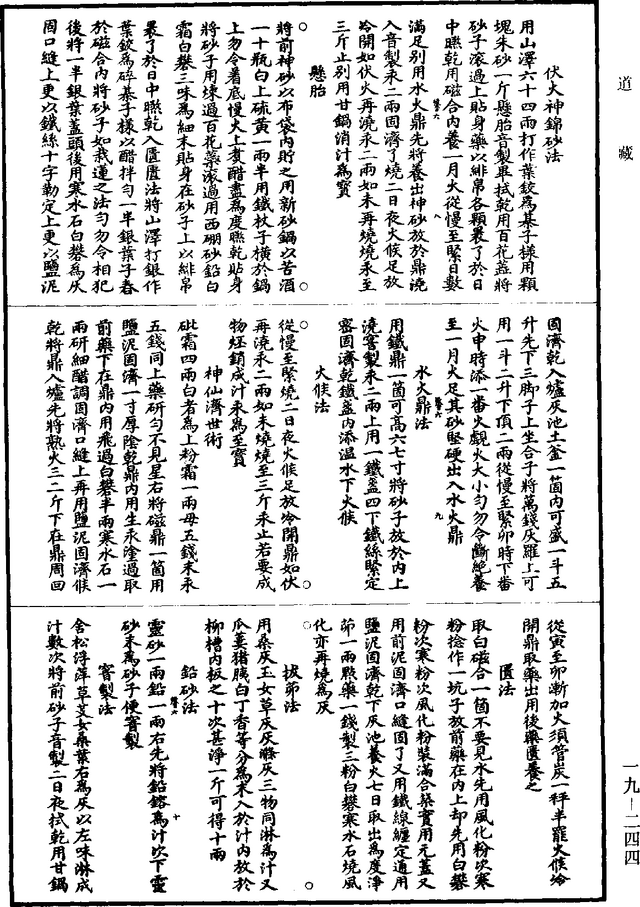 道藏
伏火神錦砂法
用山澤六十四兩打作葉鉸為棊子樣用顆
塊朱砂一斤懸胎音製畢拭乾用百花蕊將
砂子滾過上貼身藥以緋帛各顆褁了於日
中㬠乾用磁合內養一月火從慢至緊日數
滿足別用水火鼎先將養出神砂放於鼎澆
入音製汞二兩固濟了燒二日夜火候足放
冷開如伏火再澆汞二兩如未再燒燒汞至
三斤止別用甘鍋消汁為寶
懸胎
將前神砂以布袋內貯之用新砂鍋以苦酒
一十瓶白上硫黃一兩半用鐵杖子橫於鍋
上勿令着底慢火上煑酣盡為度㬠乾貼身
將砂子用煉過百花藥滾過用西硼砂鉛白
霜白礬三味為細末貼身在砂子上以緋帛
褁了於日中㬠乾入匱匱法將山澤打銀作
葉鉸為碎棊子樣以醋拌勻一半銀葉子舂
於磁合內將砂子如栽蓮之法勻勿令相犯
後將一半銀葉蓋頭後用寒水石白礬為灰
固口縫上更以鐵絲十字勒定上更以鹽泥
固濟乾入爐灰池土釜一箇內可盛一斗五
升先下三脚子上坐合子將萬錢灰羅上可
用一斗二升下頂二兩從慢至緊卯時下番
火申時添一番火觀火大小勻勿令斷絕養
至一月火足其砂堅硬出入水火鼎
水火鼎法
用鐵鼎一箇可高六七寸將砂子放於內上
澆窨製汞二兩上用一鐵盞四下鐵絲緊定
密固濟乾鐵盞內添溫水下火候
火候法
從慢至緊燒二日夜火候足放冷開鼎如伏
再澆汞二兩如未燒燒至三斤汞止若要成
物煿銷成汁汞為至寶
神仙濟世術
砒霜四兩白者為上粉霜一兩母五錢末汞
五錢同上藥研勻不見星右將磁鼎一箇用
鹽泥固濟一寸厚陰乾鼎內用生永塗過取
前藥下在鼎內用飛過白礬半兩寒水石一
兩研細醋調固濟口縫上再用鹽泥固濟候
乾將鼎入爐先將熟火三二斤下在鼎周回
從寅至卯漸加火須管炭一秤半罷火候冷
開鼎取藥出用後藥匱養之
匱法
取白磁合一箇不要見水先用風化粉次寒
粉捻作一坑子放前藥在內上却先用白礬
粉次寒粉次風化粉裝滿合築實用元蓋又
用前泥固濟口縫固了又用鐵線纏定通用
鹽泥固濟乾下灰池養火七日取出為度淨
茆一兩㸃藥一錢製三粉白礬寒水石燒風
化亦再燒為灰
拔茆法
用桑灰玉女草灰灰滌灰三物同淋為汁又
瓜蔞豬胰白丁香等分為末入於汁內放於
柳槽內板之十次甚淨一斤可得十兩
鉛砂法
靈砂一兩鉛一兩右先將鉛鎔為汁次下靈
砂末為砂子便窨製
窨製法
舍松浮萍草艾女桑葉右為灰以左味淋成
汁數次將前砂子音製二日夜拭乾用甘鍋
一九－二四四